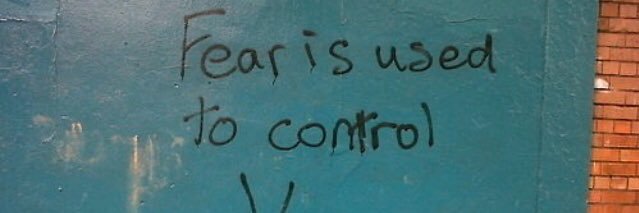 Fear is used
to control